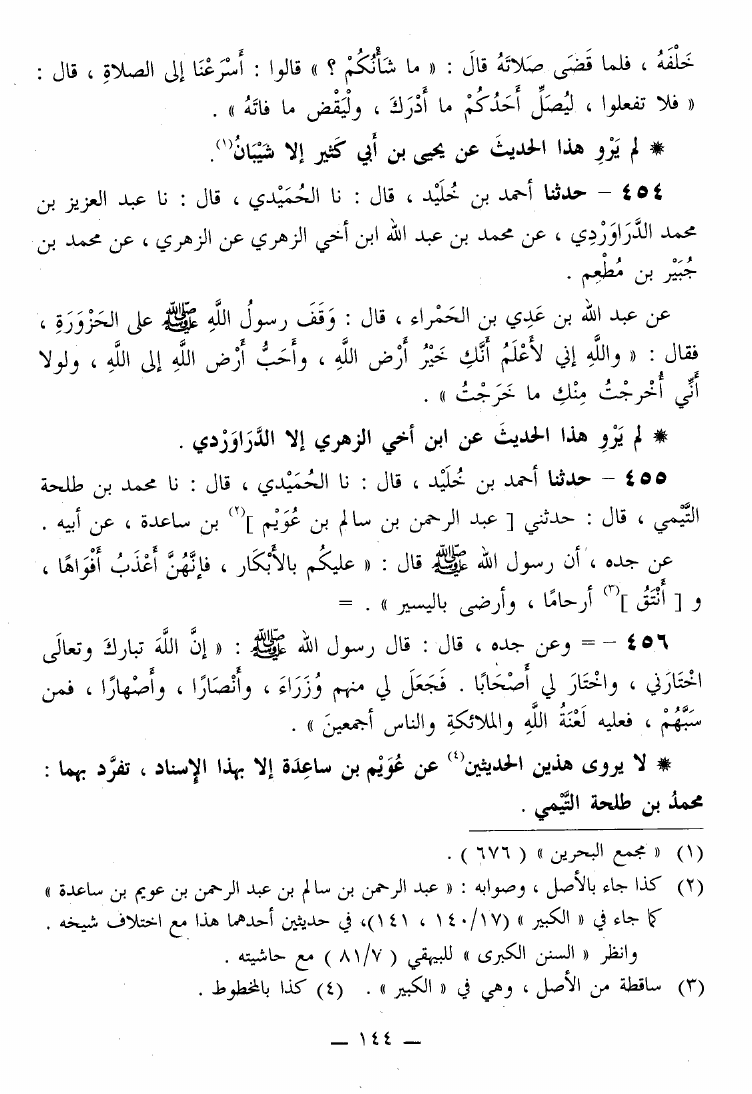 خَلْفَهُ ، فلما قَضَى صَلاتَهُ قالَ : « ما شَأْنُكُمْ ؟ » قالوا : أَسْرَعْنَا إلى الصلاةِ ، قال :
« فلا تفعلوا ، ليُصَلِّ أَحَدُكُمْ ما أَدْرَكَ ، ولْيَقْضِ ما فاتَهُ » .
* لم يَرْوِ هذا الحديثَ عن يحيى بن أبي كَثير إلا شَيْبَانُ(١).
٤٥٤ – حدثنا أحمد بن خُلَيْد ، قال : نا الحُمَيْدي ، قال : نا عبد العزيز بن
محمد الدَّرَاوَرْدِي ، عن محمد بن عبد الله ابن أخي الزهري عن الزهري ، عن محمد بن
جُبَيْر بن مُطْعِم .
عن عبد الله بن عَدِي بن الحَمْراء ، قال : وَقَفَ رسولُ اللَّهِ ﷺ على الحَزْوَرَةِ ،
فقال : « واللَّهِ إني لأَعْلَمُ أَنَّكِ خَيْرُ أَرْضِ اللَّهِ ، وأَحَبُّ أَرْضِ اللَّهِ إلى اللَّهِ ، ولولا
أَنِّي أُخْرِجْتُ مِنْكِ ما خَرَجْتُ » .
* لم يَرْوِ هذا الحديثَ عن ابن أخي الزهري إلا الدَّرَاوَرْدي .
٤٥٥ – حدثنا أحمد بن خُلَيْد ، قال : نا الحُمَيْدي ، قال : نا محمد بن طلحة
التَّيْمي ، قال : حدثني [ عبد الرحمن بن سالم بن عُوَيْم ](٢) بن ساعدة ، عن أبيه .
عن جده ، أن رسول الله ﷺ قال : « عليكُم بالأَبْكَار ، فإنَّهُنَّ أَعْذَبُ أَفْوَاهًا ،
و [ أَنْتَقُ ](٣) أرحامًا ، وأرضى باليسير » . =
٤٥٦ – = وعن جده ، قال : قال رسول الله ﷺ : « إنَّ اللَّهَ تباركَ وتعالَى
اخْتَارَني ، واخْتَارَ لي أَصْحَابًا . فَجَعَلَ لي منهم وُزَرَاءَ ، وأَنْصَارًا ، وأَصْهارًا ، فمن
سَبَّهُمْ ، فعليه لَعْنَةُ اللَّهِ والملائكةِ والناسِ أجمعينَ » .
* لا يروى هذين الحديثين(٤) عن عُوَيْم بن ساعِدَة إلا بهذا الإِسناد ، تفرَّد بهما :
محمدُ بن طلحة التَّيْمي .
(١) « مجمع البحرين » ( ٦٧٦ ) .
(٢) كذا جاء بالأصل ، وصوابه : « عبد الرحمن بن سالم بن عبد الرحمن بن عويم بن ساعدة »
كما جاء في « الكبير » (١٤٠/١٧ ، ١٤١)، في حديثين أحدهما هذا مع اختلاف شيخه .
وانظر « السنن الكبرى » للبيهقي ( ٨١/٧ ) مع حاشيته .
(٣) ساقطة من الأصل ، وهي في « الكبير » . (٤) كذا بالمخطوط .
— ١٤٤ —